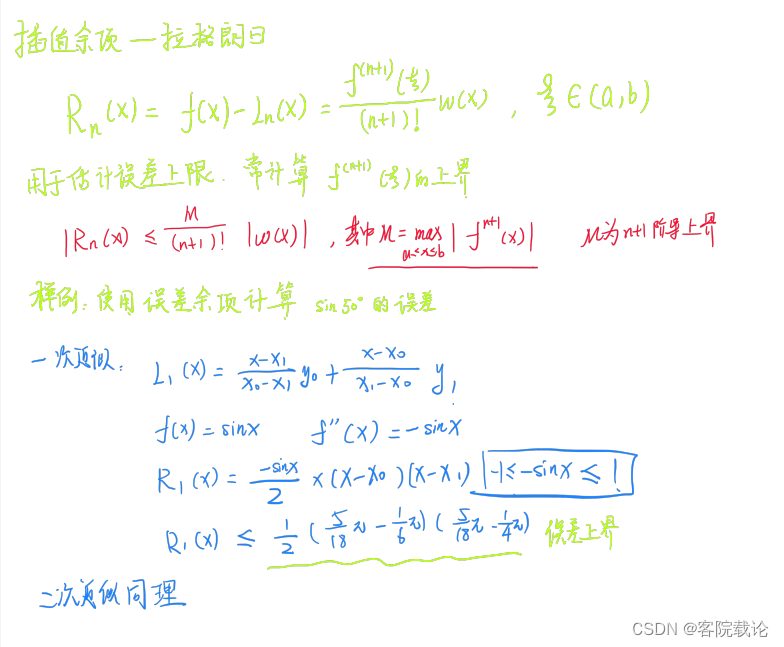 插值余项—拉格朗日
R_n(x) = f(x) - L_n(x) = \frac{f^{(n+1)}(ξ)}{(n+1)!} w(x) , ξ∈(a,b)
用于估计误差上限. 常计算 f^{(n+1)}(ξ)的上界
|R_n(x) ≤ \frac{M}{(n+1)!} |w(x)| , 其中 M = \max_{a≤x≤b} | f^{n+1}(x)| M为n+1阶导上界
样例: 使用误差余项计算 sin50°的误差
一次近似: L_1(x) = \frac{x-x_1}{x_0-x_1} y_0 + \frac{x-x_0}{x_1-x_0} y_1
f(x) = sinx f''(x) = -sinx
R_1(x) = \frac{-sinx}{2} × (x-x_0)(x-x_1) |-1≤-sinx≤1
R_1(x) ≤ \frac{1}{2} (\frac{5}{18}π - \frac{1}{6}π)(\frac{5}{18}π - \frac{1}{4}π) 误差上界
二次近似同理
CSDN @客院载论